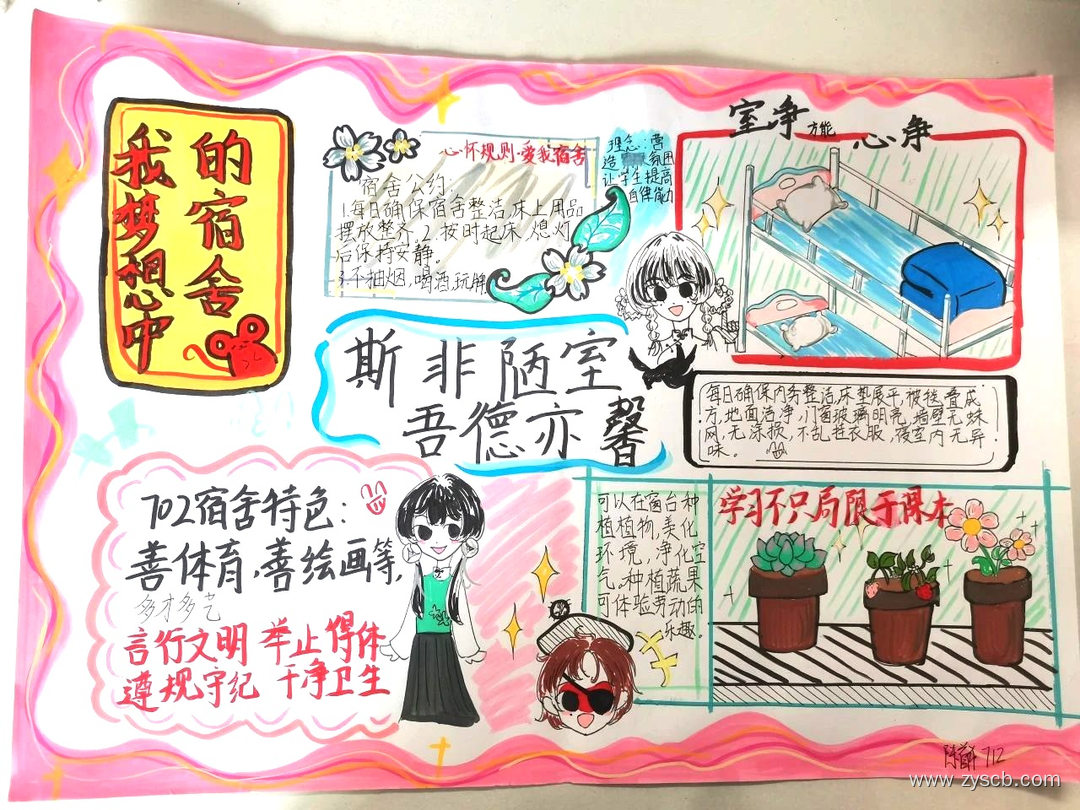 我梦想中
的宿舍
心怀规则·爱我宿舍
宿舍公约:
1.每日确保宿舍整洁,床上用品
摆放整齐.2.按时起床,熄灯
后保持安静。
3.不抽烟,喝酒,玩牌
理念:营
造 氛围
让学生提高
自律能力
室净方能心净
斯非陋室
吾德亦馨
每日确保内务整洁,床垫展平,被褥叠成
方,地面洁净,门窗玻璃明亮,墙壁无蛛
网,无涂损,不乱挂衣服,寝室内无异
味。
702宿舍特色:
善体育,善绘画等,
多才多艺
言行文明 举止得体
遵规守纪 干净卫生
可以在窗台种
植植物,美化
环境,净化空
气。种植蔬果
可体验劳动的
乐趣。
学习不只局限于课本
712
www.zyscb.com